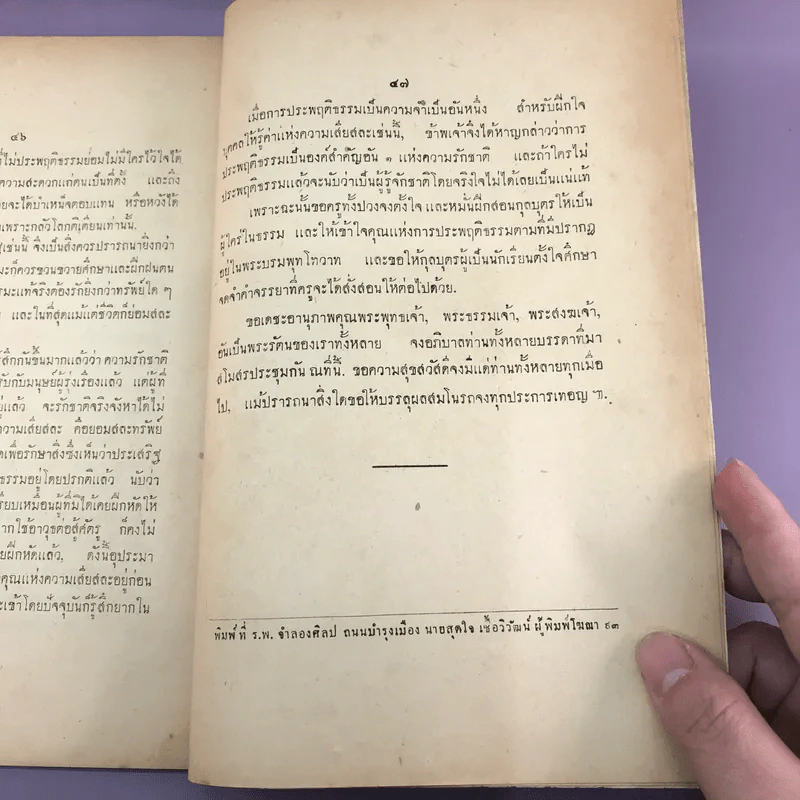 ๔๖
ที่ไม่ประพฤติธรรมย่อมไม่มีใครไว้ใจได้
ความสะดวกแก่ตนเป็นที่ตั้ง และถึง
ยจะได้บำเหน็จตอบแทน หรือหวังได้
เพราะกลัวโลกติเตียนเท่านั้น.
ู่เช่นนี้ จึงเป็นสิ่งควรปรารถนายิ่งกว่า
มะก็ควรขวนขวายศึกษาและฝึกฝนตน
รมะแท้จริงต้องรักยิ่งกว่าทรัพย์ใด ๆ
และในที่สุดแม้แต่ชีวิตก็ย่อมสละ
สึกกันขึ้นมากแล้วว่า ความรักชาติ
รับกับมนุษย์ผู้รุ่งเรืองแล้ว แต่ผู้ที่
ยู่แล้ว จะรักชาติจริงจังหาได้ไม่
ความเสียสละ คือยอมสละทรัพย์
ตเพื่อรักษาสิ่งซึ่งเห็นว่าประเสริฐ
ธรรมอยู่โดยปรกติแล้ว นับว่า
รียบเหมือนผู้ที่มิได้เคยฝึกหัดให้
ากใช้อาวุธต่อสู้ศัตรู ก็คงไม่
ยฝึกหัดแล้ว, ดังนี้อุประมา
คุณแห่งความเสียสละอยู่ก่อน
ะเข้าโดยปัจจุบันก็รู้สึกยากใน
๔๗
เมื่อการประพฤติธรรมเป็นความจำเป็นอันหนึ่ง สำหรับฝึกใจ
บุคคลให้รู้ค่าแห่งความเสียสละเช่นนี้, ข้าพเจ้าจึงได้หาญกล่าวว่าการ
ประพฤติธรรมเป็นองค์สำคัญอัน ๑ แห่งความรักชาติ และถ้าใครไม่
ประพฤติธรรมแล้วจะนับว่าเป็นผู้รู้จักชาติโดยจริงใจไม่ได้เลยเป็นแน่แท้
เพราะฉะนั้นขอครูทั้งปวงจงตั้งใจ และหมั่นฝึกสอนกุลบุตรให้เป็น
ผู้ใคร่ในธรรม และให้เข้าใจคุณแห่งการประพฤติธรรมตามที่มีปรากฏ
อยู่ในพระบรมพุทโธวาท และขอให้กุลบุตรผู้เป็นนักเรียนตั้งใจศึกษา
จดจำคำจรรยาที่ครูจะได้สั่งสอนให้ต่อไปด้วย.
ขอเดชะอานุภาพคุณพระพุทธเจ้า, พระธรรมเจ้า, พระสงฆเจ้า,
อันเป็นพระรัตนของเราทั้งหลาย จงอภิบาลท่านทั้งหลายบรรดาที่มา
สโมสรประชุมกัน ณที่นี้. ขอความสุขสวัสดิ์จงมีแด่ท่านทั้งหลายทุกเมื่อ
ไป, แม้ปรารถนาสิ่งใดขอให้บรรลุผลสมโนรถจงทุกประการเทอญ ฯ.
พิมพ์ที่ ร.พ. จำลองศิลป ถนนบำรุงเมือง นายสุดใจ เชื้อวิวัฒน์ ผู้พิมพ์โฆณา ๙๓